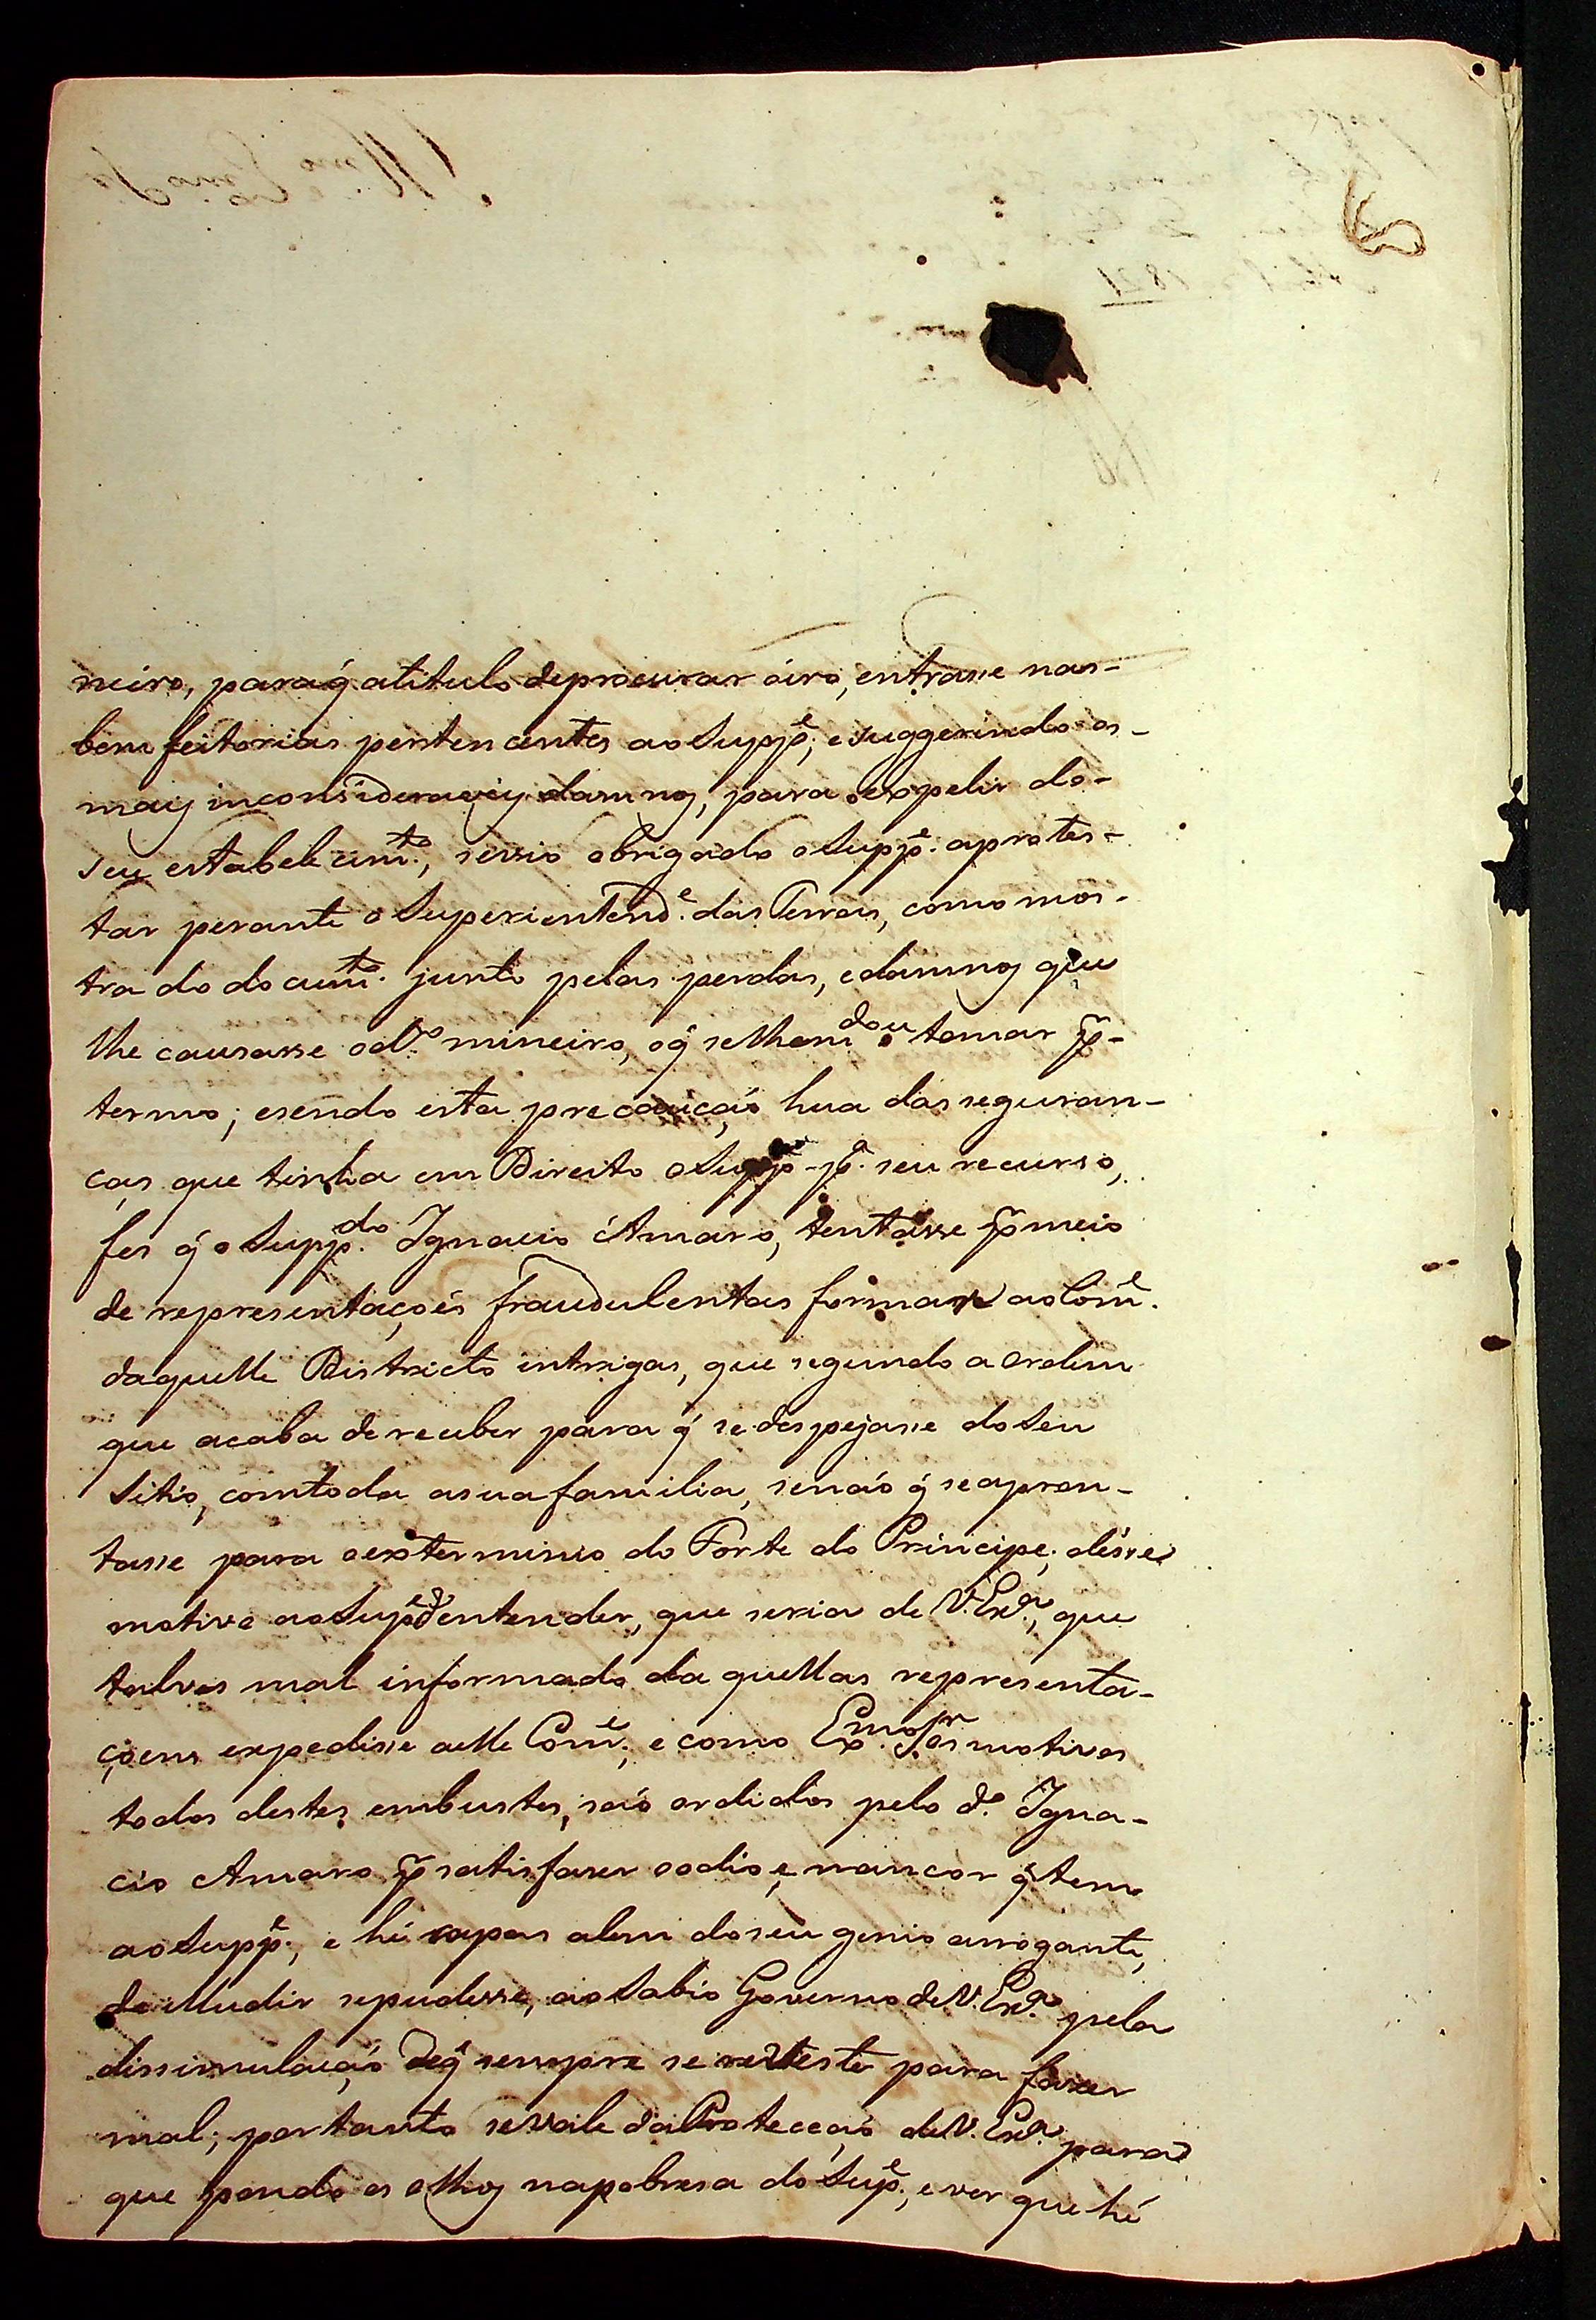 neiro, para q̃ atitulo deprocurar óiro, entrasse nas-
bem feitorias pertencentes ao Supp.e, esuggerindo os-
mais inconsideraveis damnos, para oexpelir do-
seu estabelecim.to, sevio obrigado o Supp.e aprotes-
tar perante o Superientend.e das Terras, como mos-
tra do docum.to junto pelas perdas, edamnos que
lhe causasse od.o mineiro, oq̃ selhemandou tomar p.r
termo; esendo esta precauçaõ hua das seguran-
ças que tinha em Direito o Supp.e p.a seu recurso,
fes q̃ o Supp.do Ignacio Amaro, tentasse p.r meio
de representaçoẽs fraudulentas formar ao Com.e
daquelle Districto intrigas, que segundo a ordem
que acaba de receber para q̃ se despejasse do seu
Sitio, comtoda asuafamilia, senaõ q̃ seapron-
tasse para oexterminio do Forte do Principe; désse
motivo aoSup.e d'entender, que seria de V. Ex.a, que
talves mal informado da quellas representa-
çoens expedisse aelle Com.e; e como Ex.mo Sr. os motivos
todos destes embustes, saõ ordidos pelo d.o Igna-
cio Amaro p.r satisfaser oodio e rancor q̃ tem
aoSupp.e, e hé capas alem doseu genio arrogante,
de illudir sepudesse, aoSabio Governo de V. Ex.a pela
dissimulaçaõ deq̃ sempre se reveste para faser
mal; portanto sevale da Protecçaõ de V. Ex.a para
que pondo os olhos napobresa do Sup.e, ever que hé